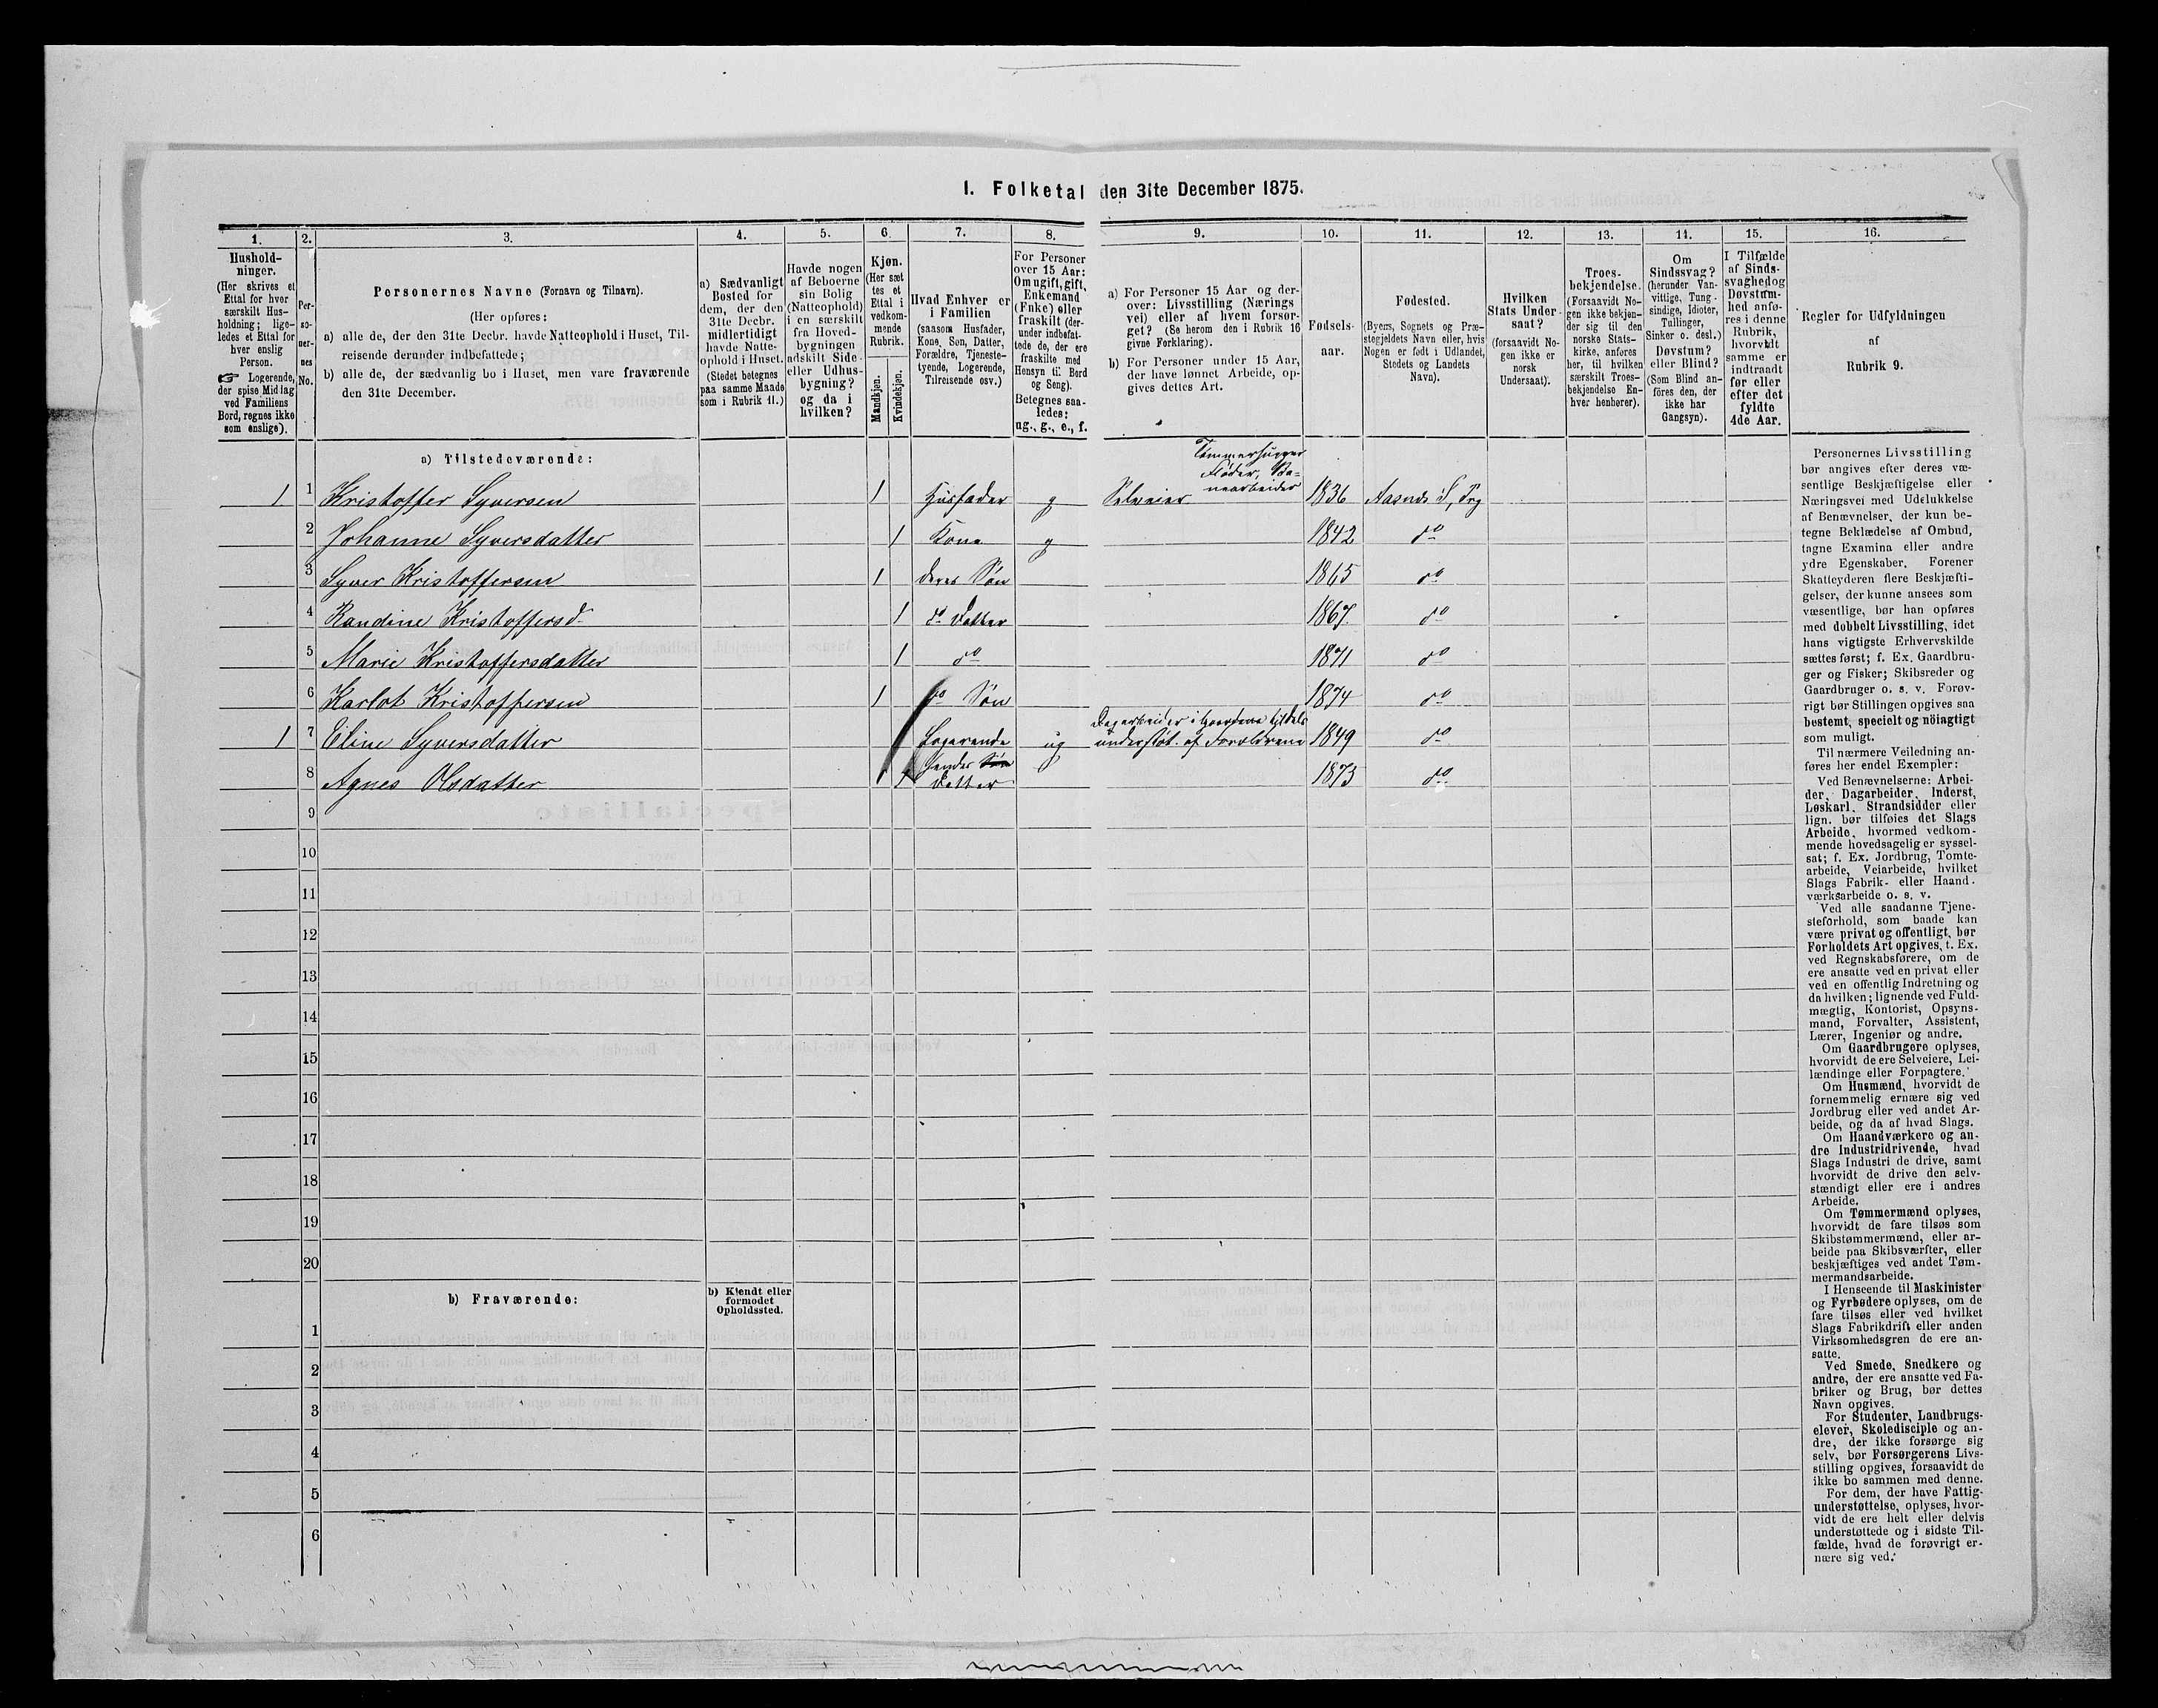 1. Folketal den 31te December 1875.
1. 2. 3. 4. 5. 6. 7. 8. 9. 10. 11. 12. 13. 14. 15. 16.
Hushold-
ninger.
(Her skrives et
Ettal for hver
særskilt Hus-
holdning; lige-
ledes et Ettal for
hver enslig
Person.
☞ Logerende,
der spise Middag
ved Familiens
Bord, regnes ikke
som enslige).
Per-
so-
ner-
nes
No.
Personernes Navne (Fornavn og Tilnavn).
(Her opføres:
a) alle de, der den 31te Decbr. havde Natteophold i Huset, Til-
reisende derunder indbefattede;
b) alle de, der sædvanlig bo i Huset, men vare fraværende
den 31te December.
a) Sædvanligt
Bosted for
dem, der den
31te Decbr.
midlertidigt
havde Natte-
ophold i Huset.
(Stedet betegnes
paa samme Maade
som i Rubrik 11.)
Havde nogen
af Beboerne
sin Bolig
(Natteophold)
i en særskilt
fra Hoved-
bygningen
adskilt Side-
eller Udhus-
bygning?
og da i
hvilken?
Kjøn.
(Her sæt
tes et
Ettal i
vedkom-
mende
Rubrik.
Mandkjøn.
Kvindekjøn.
Hvad Enhver er
i Familien
(saasom Husfader,
Kone, Søn, Datter,
Forældre, Tjeneste-
tyende, Logerende,
Tilreisende osv.)
For Personer
over 15 Aar:
Om ugift, gift,
Enkemand
(Enke) eller
fraskilt (der-
under indbefat-
tede de, der ere
fraskilte med
Hensyn til Bord
og Seng).
Betegnes saa-
ledes:
ug., g., e., f.
a) For Personer 15 Aar og der-
over: Livsstilling (Nærings
vei) eller af hvem forsør-
get? (Se herom den i Rubrik 16
givne Forklaring).
b) For Personer under 15 Aar,
der have lønnet Arbeide, op-
gives dettes Art.
Fødsels-
aar.
Fødested.
(Byens, Sognets og Præ-
stegjeldets Navn eller, hvis
Nogen er født i Udlandet,
Stedets og Landets
Navn).
Hvilken
Stats Under-
saat?
(forsaavidt No-
gen ikke er
norsk
Undersaat).
Troes-
bekjendelse.
(Forsaavidt No-
gen ikke bekjen-
der sig til den
norske Stats-
kirke, anføres
her, til hvilken
særskilt Troes-
bekjendelse En-
hver henhører).
Om
Sindssvag?
(herunder Van-
vittige, Tung-
sindige, Idioter,
Tullinger,
Sinker o. desl.)
Døvstum?
eller Blind?
(Som Blind an-
føres den, der
ikke har
Gangsyn).
I Tilfælde
af Sinds-
svaghed og
Døvstum-
hed anfø-
res i denne
Rubrik,
hvorvidt
samme er
indtraadt
før eller
efter det
fyldte
4de Aar.
Regler for Udfyldningen
af
Rubrik 9.
a) Tilstedeværende:
Tømmerhugger
Fløder, Ba-
nearbeider
1 1 Kristoffer Syversen 1 Husfader g Selveier 1836 Aasnes S, Prg
2 Johanne Syversdatter 1 Kone g 1842 do
3 Syver Kristoffersen 1 deres Søn 1865 do
4 Randine Kristoffersd. 1 do Datter 1867 do
5 Marie Kristoffersdatter 1 do 1871 do
6 Karlot Kristoffersen 1 do Søn 1874 do
Dagarbeider i Gaardene tildels
1 7 Eline Syversdatter 1 Logerende ug understøt. af Forældrene 1849 do
hendes Søn
8 Agnes Olsdatter 1 Datter 1873 do
9
10
11
12
13
14
15
16
17
18
19
20
b) Fraværende:
b) Kjendt eller
formodet
Opholdssted.
1
2
3
4
5
6
Personernes Livsstilling
bør angives efter deres væ-
sentlige Beskjæftigelse eller
Næringsvei med Udelukkelse
af Benævnelser, der kun be-
tegne Beklædelse af Ombud,
tagne Examina eller andre
ydre Egenskaber. Forener
Skatteyderen flere Beskjæfti-
gelser, der kunne ansees som
væsentlige, bør han opføres
med dobbelt Livsstilling, idet
hans vigtigste Erhvervskilde
sættes først; f. Ex. Gaardbru-
ger og Fisker; Skibsreder og
Gaardbruger o. s. v. Forøv-
rigt bør Stillingen opgives saa
bestemt, specielt og nöiagtigt
som muligt.
Til nærmere Veiledning an-
føres her endel Exempler:
Ved Benævnelserne: Arbei-
der, Dagarbeider, Inderst,
Løskarl, Strandsidder eller
lign. bør tilføies det Slags
Arbeide, hvormed vedkom-
mende hovedsagelig er syssel-
sat; f. Ex. Jordbrug, Tomte-
arbeide, Veiarbeide, hvilket
Slags Fabrik- eller Haand-
værksarbeide o. s. v.
Ved alle saadanne Tjene-
steforhold, som baade kan
være privat og offentligt, bør
Forholdets Art opgives, t. Ex.
ved Regnskabsførere, om de
ere ansatte ved en privat eller
ved en offentlig Indretning og
da hvilken; lignende ved Fuld-
mægtig, Kontorist, Opsyns-
mand, Forvalter, Assistent,
Lærer, Ingeniør og andre.
Om Gaardbrugere oplyses,
hvorvidt de ere Selveiere, Lei-
lændinge eller Forpagtere.
Om Husmænd, hvorvidt de
fornemmelig ernære sig ved
Jordbrug eller ved andet Ar-
beide, og da af hvad Slags.
Om Haandværkere og an-
dre Industridrivende, hvad
Slags Industri de drive, samt
hvorvidt de drive den selv-
stændigt eller ere i andres
Arbeide.
Om Tømmermænd oplyses,
hvorvidt de fare tilsøs som
Skibstømmermænd, eller ar-
beide paa Skibsværfter, eller
beskjæftiges ved andet Tøm-
mermandsarbeide.
I Henseende til Maskinister
og Fyrbødere oplyses, om de
fare tilsøs eller ved hvilket
Slags Fabrikdrift eller anden
Virksomhedsgren de ere an-
satte.
Ved Smede, Snedkere og
andre, der ere ansatte ved Fa-
briker og Brug, bør dettes
Navn opgives.
For Studenter, Landbrugs-
elever, Skoledisciple og an-
dre, der ikke forsørge sig
selv, bør Forsørgerens Livs-
stilling opgives, forsaavidt de
ikke bo sammen med denne.
For dem, der have Fattig-
understøttelse, oplyses, hvor-
vidt de ere helt eller delvis
understøttede og i sidste Til-
fælde, hvad de forøvrigt er-
nære sig ved.